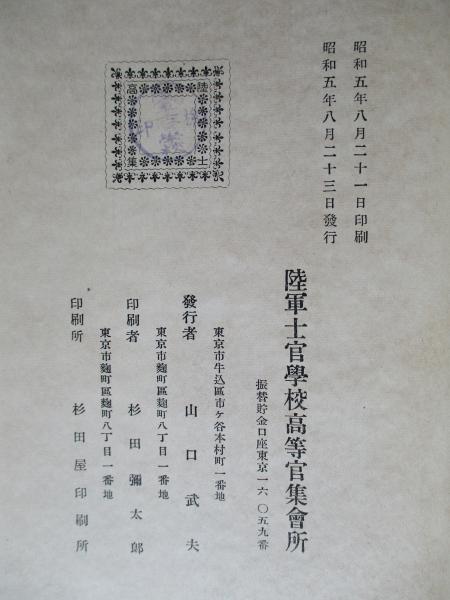 昭和五年八月二十一日印刷
昭和五年八月二十三日發行
陸士
高集
陸軍士官學校高等官集會所
振替貯金口座東京一六〇五九番
東京市牛込區市ケ谷本村町一番地
發行者 山口武夫
東京市麴町區麴町八丁目一番地
印刷者 杉田彌太郎
東京市麴町區麴町八丁目一番地
印刷所 杉田屋印刷所